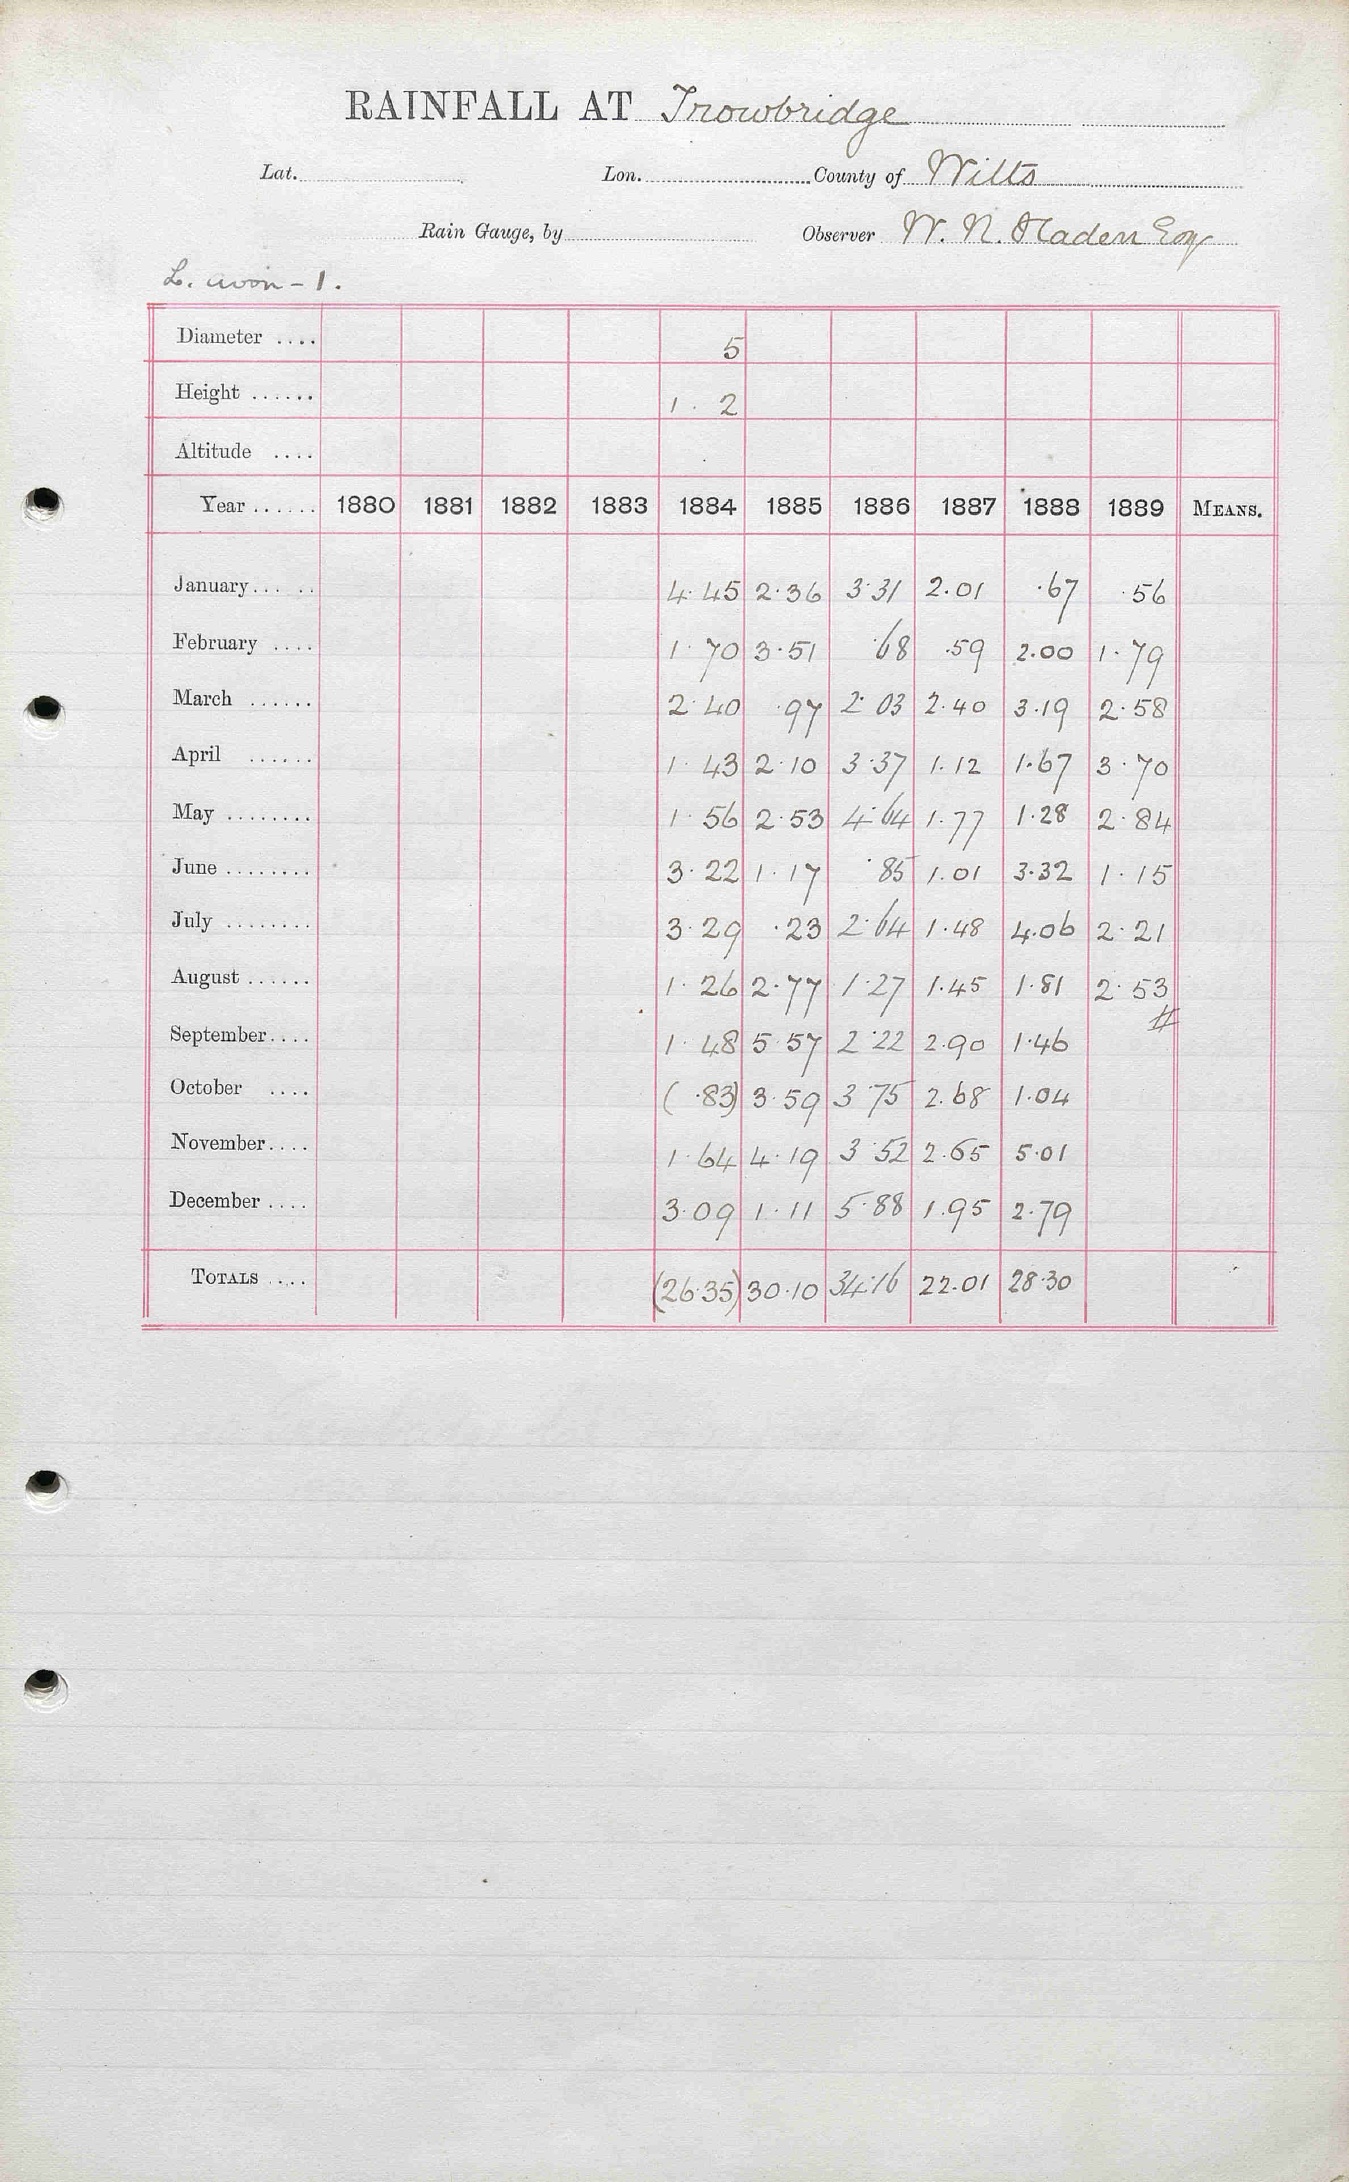 RAINFALL AT Trowbridge
Lat. Lon. County of Wilts
Rain Gauge, by Observer W. N. Haden Esq
L. Avon - 1.
Diameter .... 5
Height ...... 1 . 2
Altitude ....
Year ...... 1880 1881 1882 1883 1884 1885 1886 1887 1888 1889 MEANS.
January... .. 4.45 2.36 3.31 2.01 .67 .56
February .... 1.70 3.51 .68 .59 2.00 1.79
March ...... 2.40 .97 2.03 2.40 3.19 2.58
April ...... 1.43 2.10 3.37 1.12 1.67 3.70
May ........ 1.56 2.53 4.64 1.77 1.28 2.84
June ........ 3.22 1.17 .85 1.01 3.32 1.15
July ........ 3.29 .23 2.64 1.48 4.06 2.21
August ...... 1.26 2.77 1.27 1.45 1.81 2.53
#
September.... 1.48 5.57 2.22 2.90 1.46
October .... ( .83) 3.59 3.75 2.68 1.04
November.... 1.64 4.19 3.52 2.65 5.01
December .... 3.09 1.11 5.88 1.95 2.79
TOTALS .... (26.35) 30.10 34.16 22.01 28.30